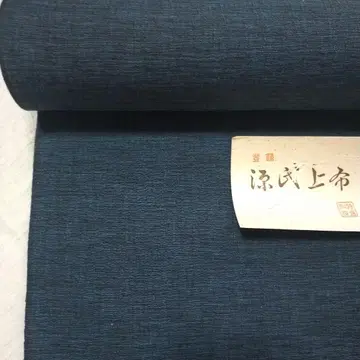 源氏上布